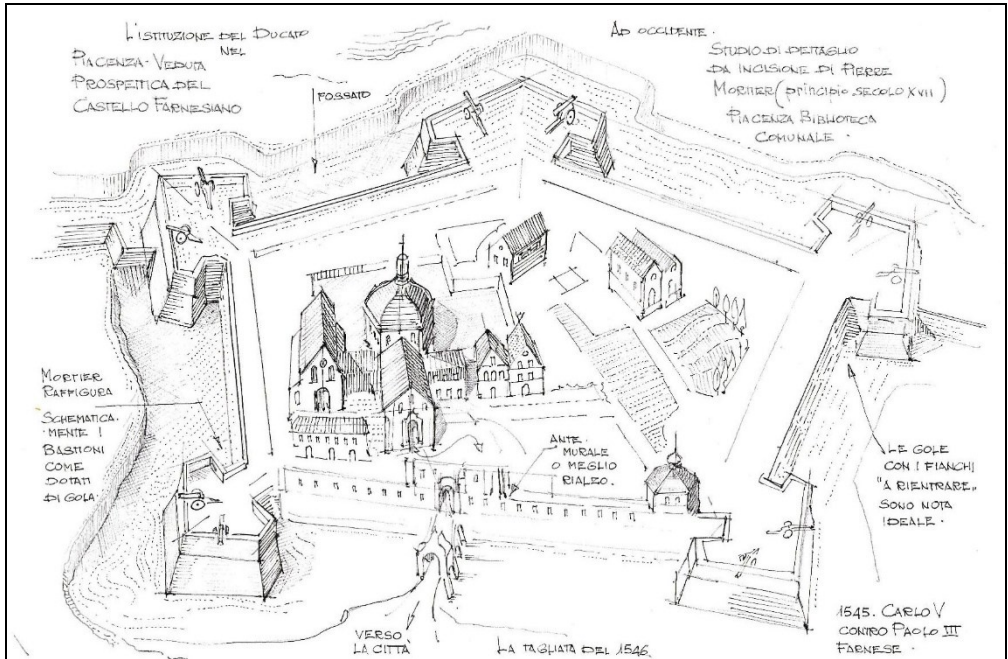 L'ISTITUZIONE DEL DUCATO
NEL
PIACENZA - VEDUTA
PROSPETTICA DEL
CASTELLO FARNESIANO
AD OCCIDENTE.
STUDIO DI DETTAGLIO
DA INCISIONE DI PIERRE
MORTIER (principio secolo XVII)
PIACENZA BIBLIOTECA
COMUNALE.
FOSSATO
MORTIER
RAFFIGURA
SCHEMATICA-
-MENTE I
BASTIONI
COME
DOTATI
DI GOLA.
ANTE-
MURALE
O MEGLIO
RIALZO.
LE GOLE
CON I FIANCHI
"A RIENTRARE"
SONO NOTA
IDEALE.
VERSO
LA CITTÀ
LA TAGLIATA DEL 1546.
1545. CARLO V
CONTRO PAOLO III
FARNESE.